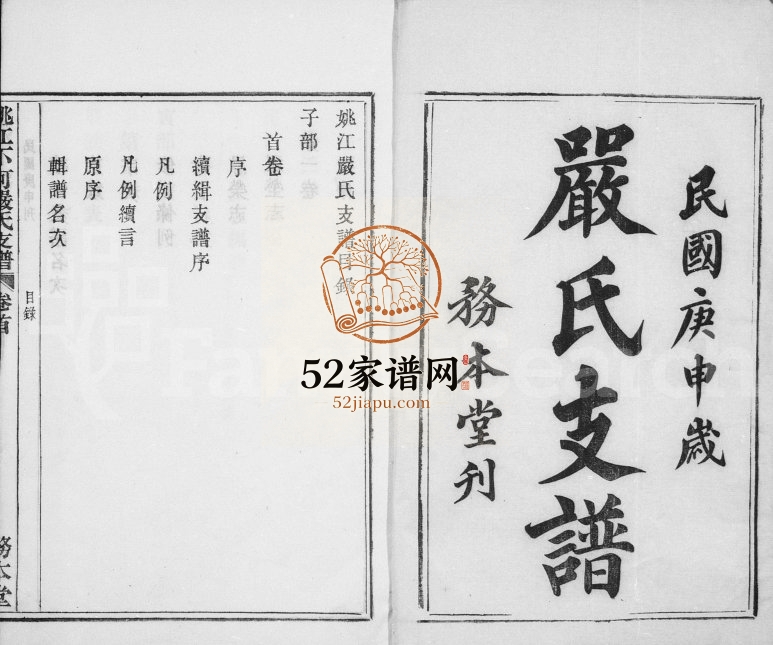 民國庚申歲
嚴氏支譜
務本堂刊
姚江嚴氏支譜目錄
子部
首卷
序
續緝支譜序
凡例
凡例續言
原序
輯譜名次
目錄
嚴氏支譜
卷首
務本堂
52家谱网
52jiapu.com